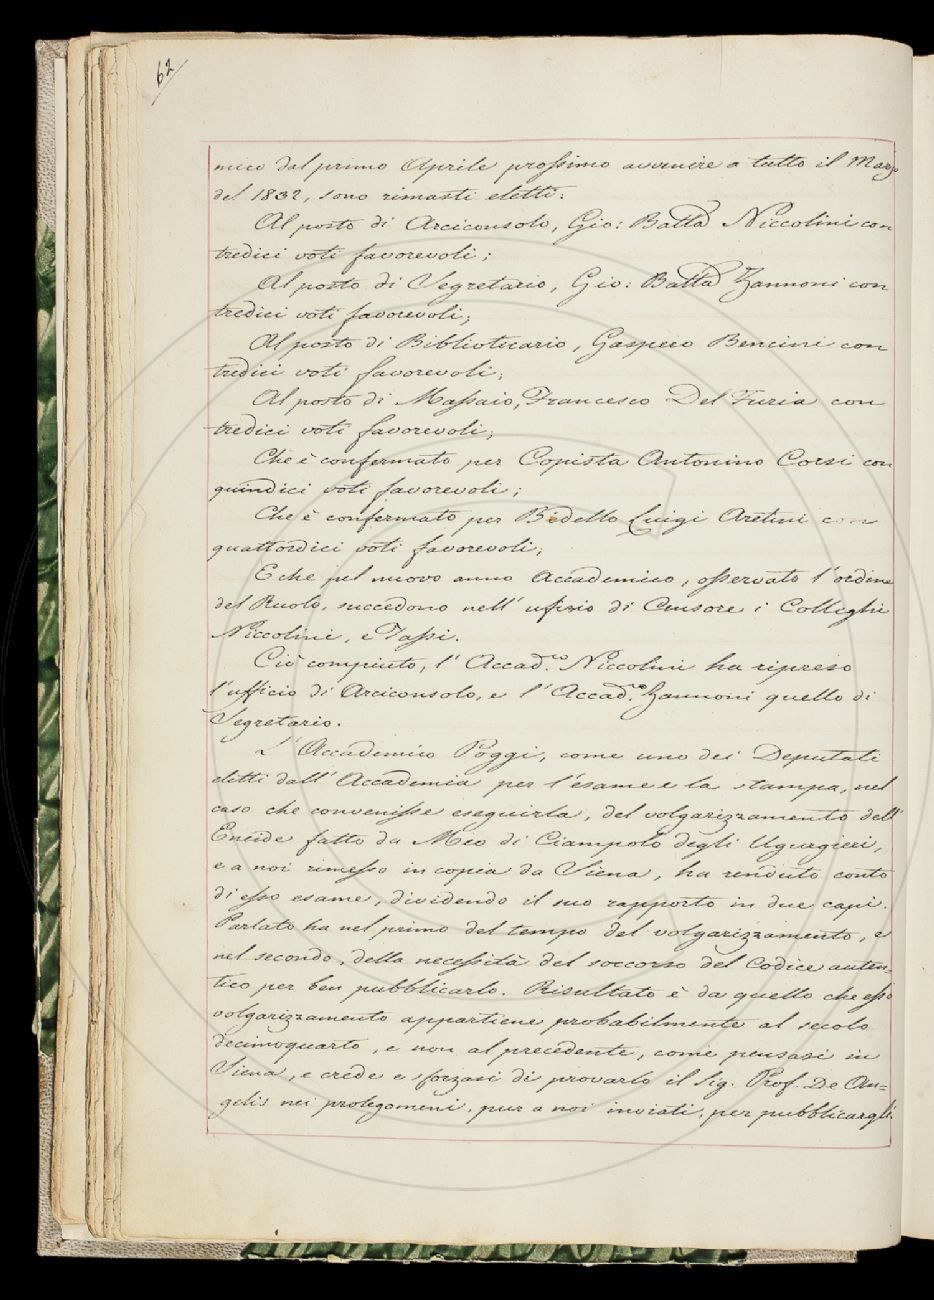 62
mico dal primo Aprile prossimo avvenire a tutto il Marzo
del 1832, sono rimasti eletti:
Al posto di Arciconsolo, Gio: Batta Niccolini con
tredici voti favorevoli;
Al posto di Segretario, Gio: Batta Zannoni con
tredici voti favorevoli;
Al posto di Bibliotecario, Gaspero Bencini con
tredici voti favorevoli;
Al posto di Massaio, Francesco Del Furia con
tredici voti favorevoli;
Che è confermato per Copista Antonino Corsi con
quindici voti favorevoli;
Che è confermato per Bidello Luigi Aretini con
quattordici voti favorevoli;
E che pel nuovo anno Accademico, osservato l'ordine
del Ruolo, succedono nell'ufizio di Censore i Colleghi
Niccolini, e Tassi.
Ciò compiuto, l'Accad.co Niccolini ha ripreso
l'ufficio di Arciconsolo, e l'Accad.co Zannoni quello di
Segretario.
L'Accademico Poggi, come uno dei Deputati
eletti dall'Accademia per l'esame e la stampa, nel
caso che convenisse eseguirla, del volgarizzamento dell'
Eneide fatto da Meo di Ciampolo degli Ugurgieri,
e a noi rimesso in copia da Siena, ha renduto conto
di esso esame, dividendo il suo rapporto in due capi.
Parlato ha nel primo del tempo del volgarizzamento, e
nel secondo, della necessità del soccorso del Codice auten-
tico per ben pubblicarlo. Risultato è da quello che esso
volgarizzamento appartiene probabilmente al secolo
decimoquarto, e non al precedente, come pensasi in
Siena, e crede e sforzasi di provarlo il Sig. Prof. De An=
gelis nei prolegomeni, pur a noi inviati, per pubblicargli